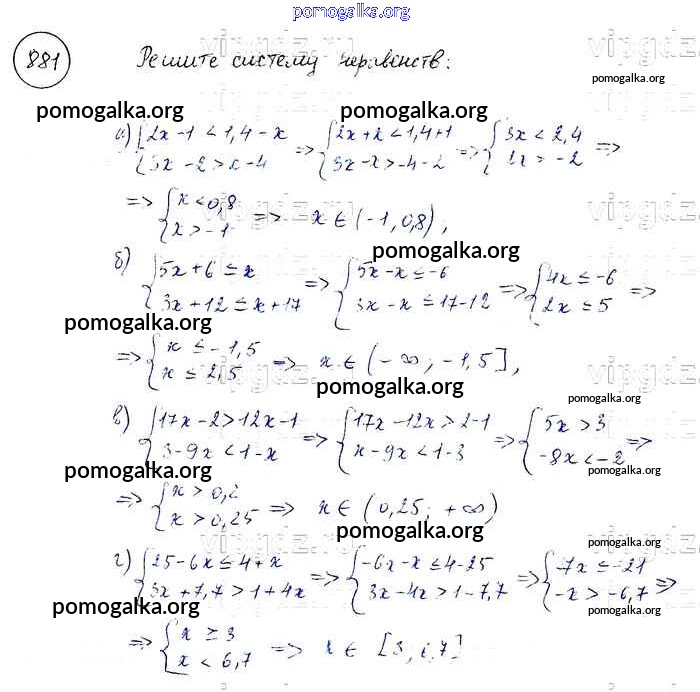 pomogalka.org
881 Решите систему неравенств:
pomogalka.org
pomogalka.org pomogalka.org
а) {2x-1<1,4-x {3x-2>x-4 => {2x+x<1,4+1 {3x-x>-4-2 => {3x<2,4 {2x=-2 =>
=> {x<0,8 {x>-1 => x∈(-1,0,8),
pomogalka.org
б) {5x+6≤x {3x+12≤x+17 => {5x-x≤-6 {3x-x≤17-12 => {4x≤-6 {2x≤5 =>
pomogalka.org
=> {x≤-1,5 {x≤2,5 => x∈(-∞;-1,5],
pomogalka.org
pomogalka.org
в) {17x-2>12x-1 {3-9x<1-x => {17x-12x>2-1 {x-9x<1-3 => {5x>3 {-8x<-2 =>
pomogalka.org pomogalka.org
=> {x>0,2 {x>0,25 => x∈(0,25; +∞)
pomogalka.org
pomogalka.org
г) {25-6x≤4+x {3x+7,7>1+4x => {-6x-x≤4-25 {3x-4x>1-7,7 => {-7x≤-21 {-x>-6,7 =>
pomogalka.org pomogalka.org
=> {x≥3 {x<6,7 => x∈[3; 6,7]